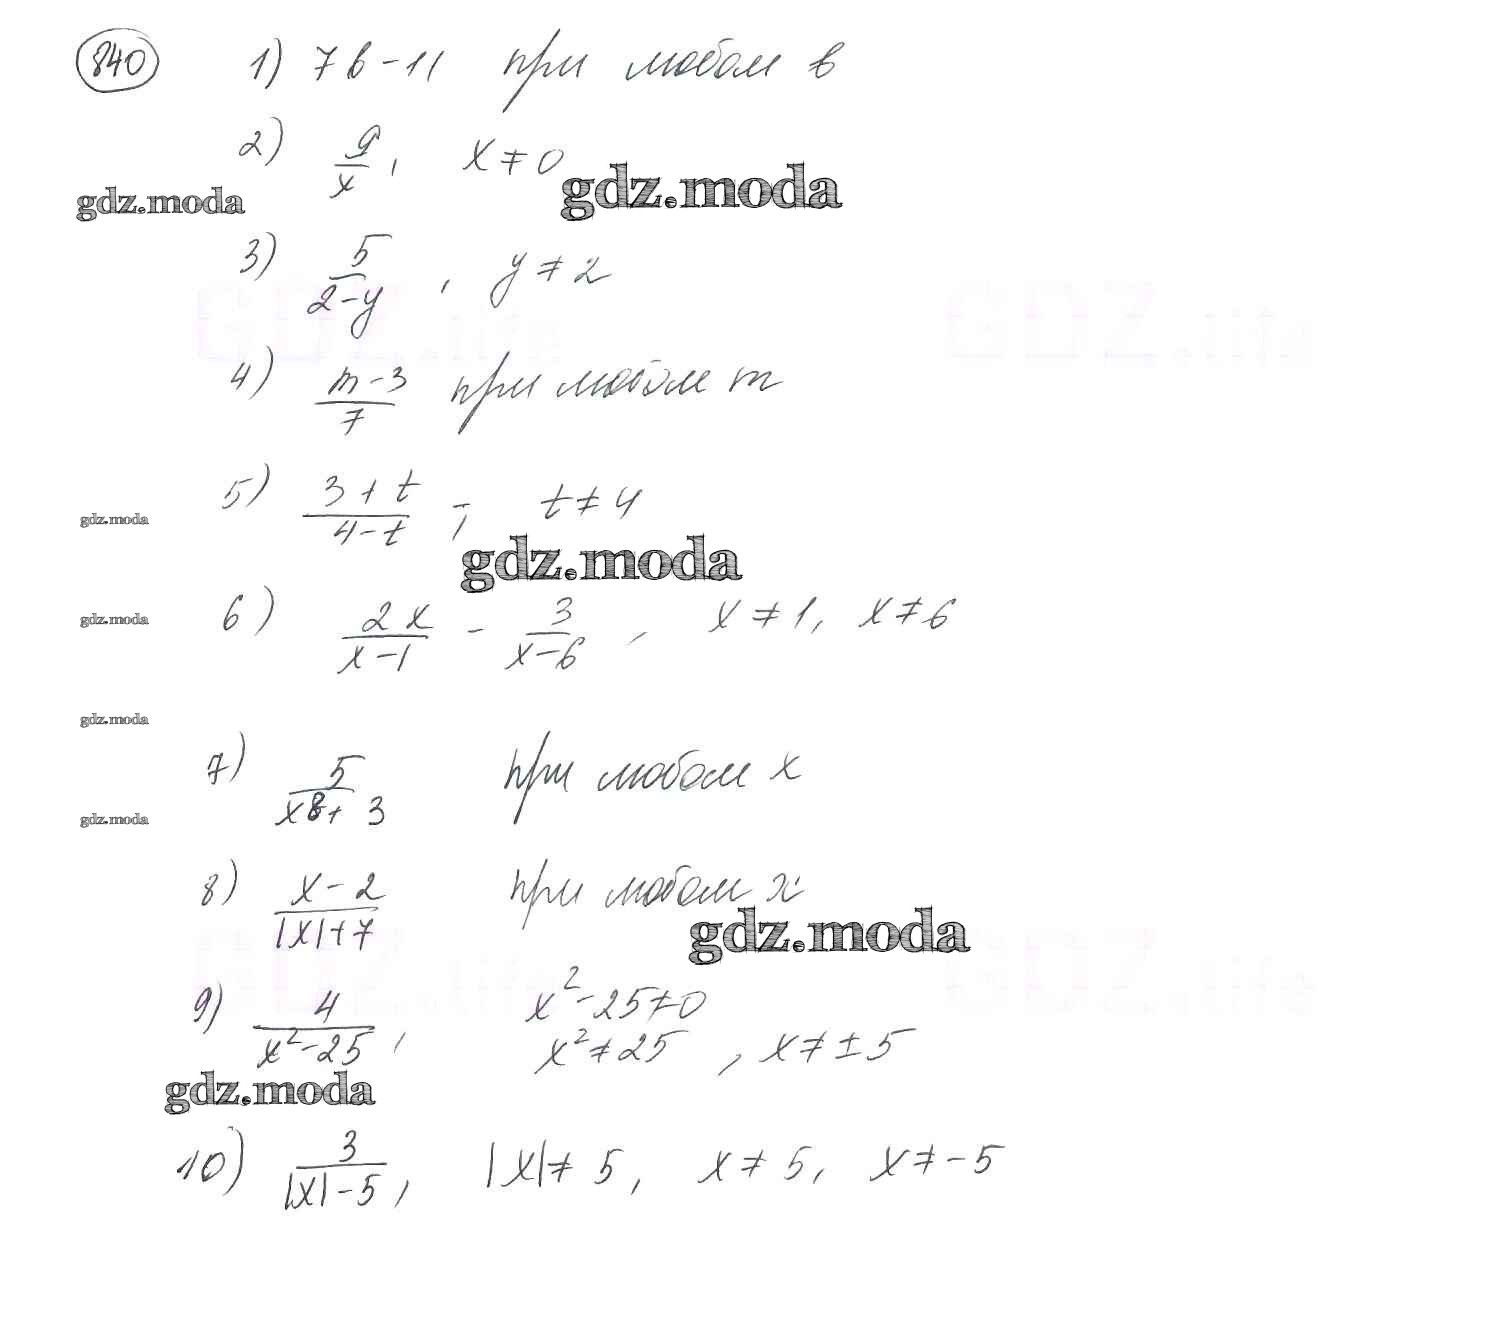 840 1) 7b-11 при любом b
2) 9/x, x≠0
gdz.moda gdz.moda
3) 5/(2-y), y≠2
GDZ.life GDZ.life
4) (m-3)/7 при любом m
5) (3+t)/(4-t); t≠4
gdz.moda
gdz.moda
6) 2x/(x-1) - 3/(x-6), x≠1, x≠6
gdz.moda
gdz.moda
7) 5/(x⁸+3) при любом x
gdz.moda
8) (x-2)/(|x|+7) при любом x
gdz.moda
GDZ.life GDZ.life
9) 4/(x²-25), x²-25≠0
x²≠25, x≠±5
gdz.moda
10) 3/(|x|-5), |x|≠5, x≠5, x≠-5